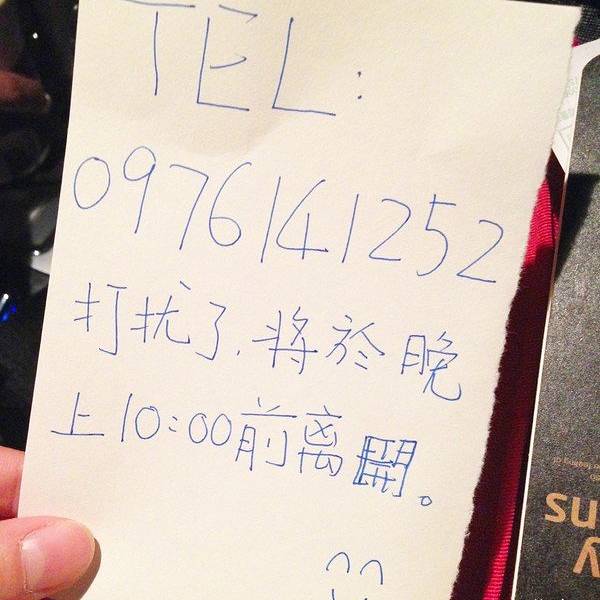 TEL:
0976141252
打扰了,将於晚
上10:00前离開。
ns
y